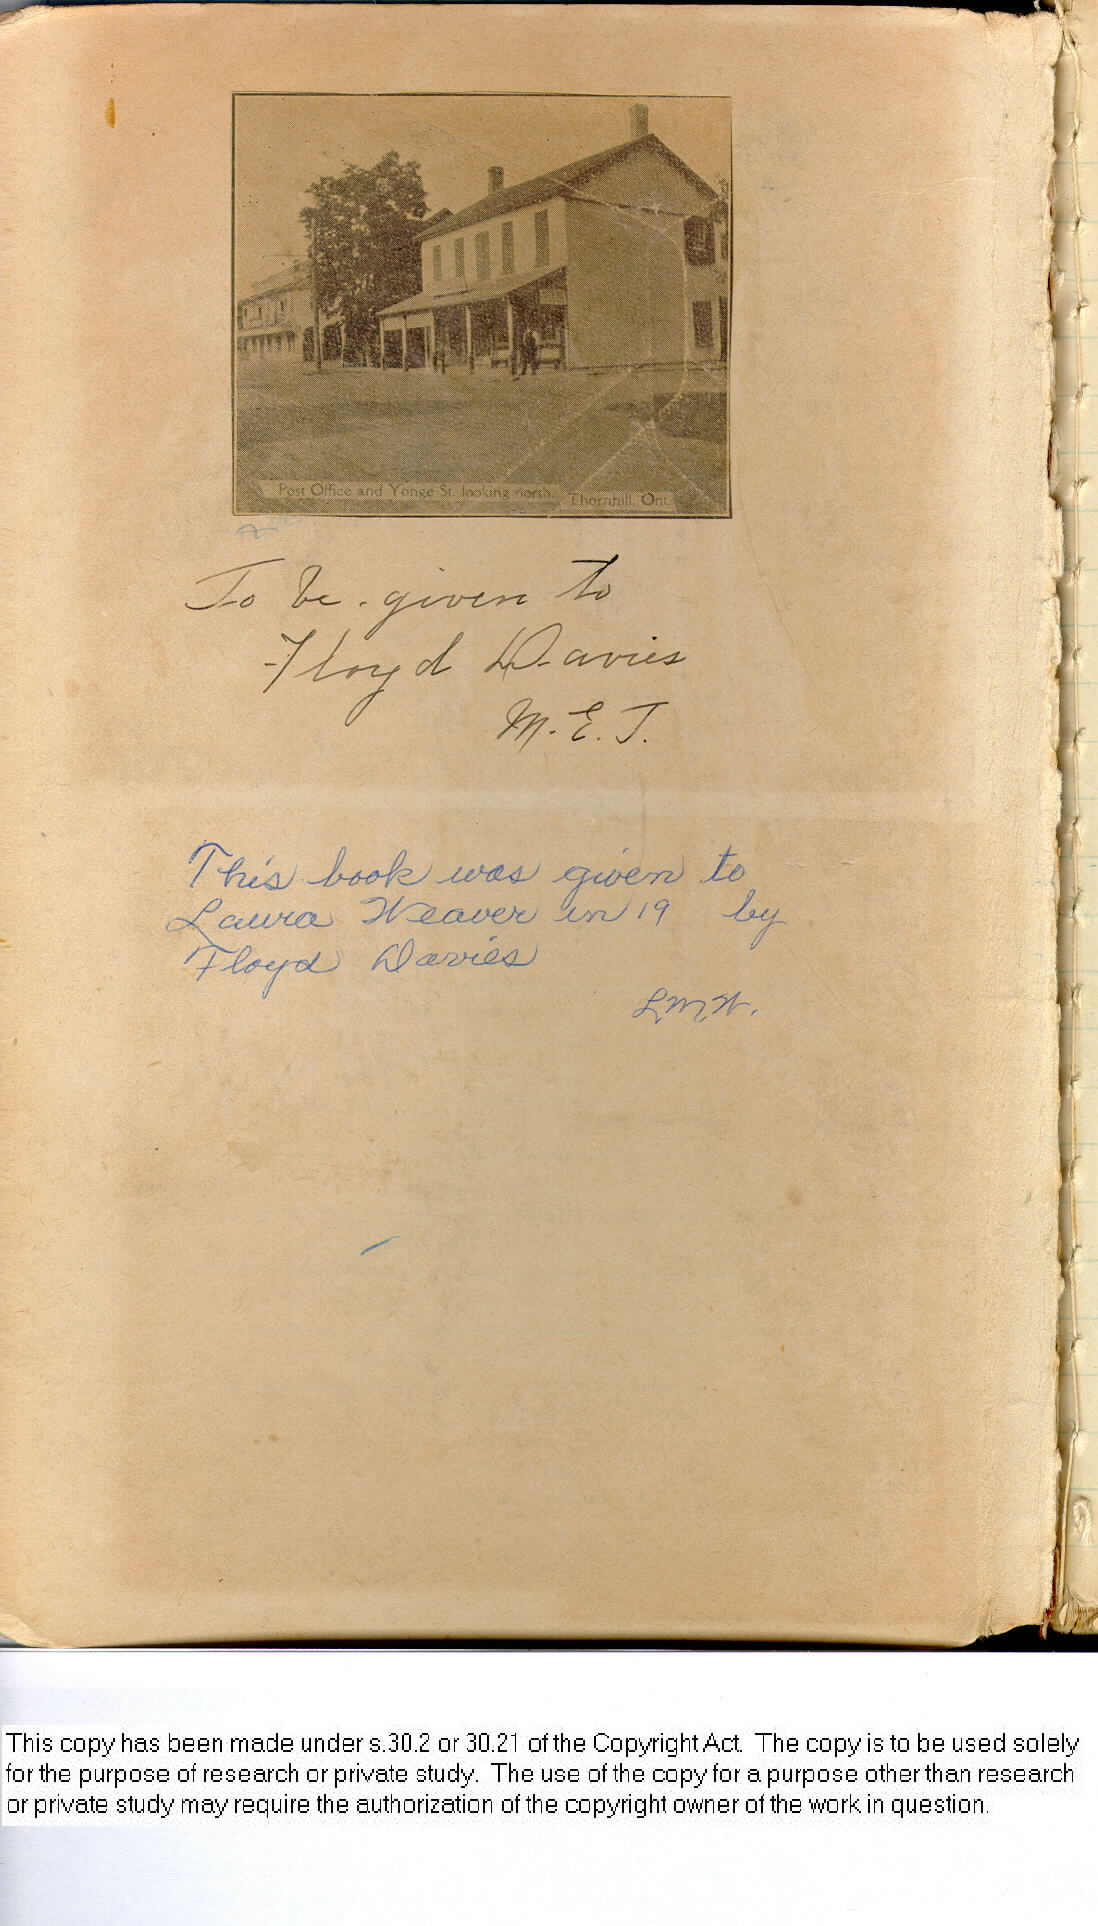 Post Office and Yonge St. looking north. Thornhill, Ont.
To be given to
Floyd Davies
M.E.J.
This book was given to
Laura Weaver in 19 by
Floyd Davies
L.M.W.
This copy has been made under s.30.2 or 30.21 of the Copyright Act. The copy is to be used solely
for the purpose of research or private study. The use of the copy for a purpose other than research
or private study may require the authorization of the copyright owner of the work in question.